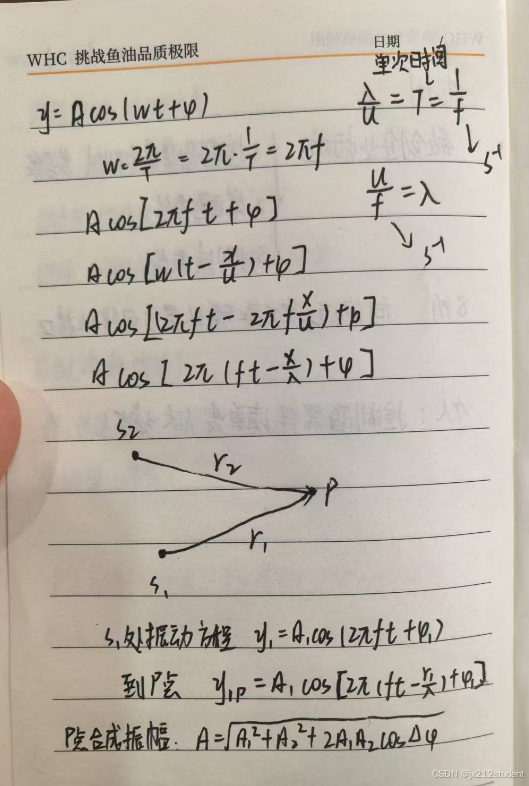 WHC 挑战鱼油品质极限
日期
单次时间
y=Acos(wt+φ)
λ/u = T = 1/f
s⁻¹
w=2π/T = 2π·1/T = 2πf
u/f = λ
s⁻¹
Acos[2πft+φ]
Acos[w(t-x/u)+φ]
Acos[(2πft-2πfx/u)+φ]
Acos[2π(ft-x/λ)+φ]
S₂
r₂
P
r₁
S₁
S₁处振动方程 y₁=A₁cos(2πft+φ₁)
到P点 y₁p=A₁cos[2π(ft-r₁/λ)+φ₁]
P点合成振幅: A=√(A₁²+A₂²+2A₁A₂cosΔφ)
CSDN @jx212student